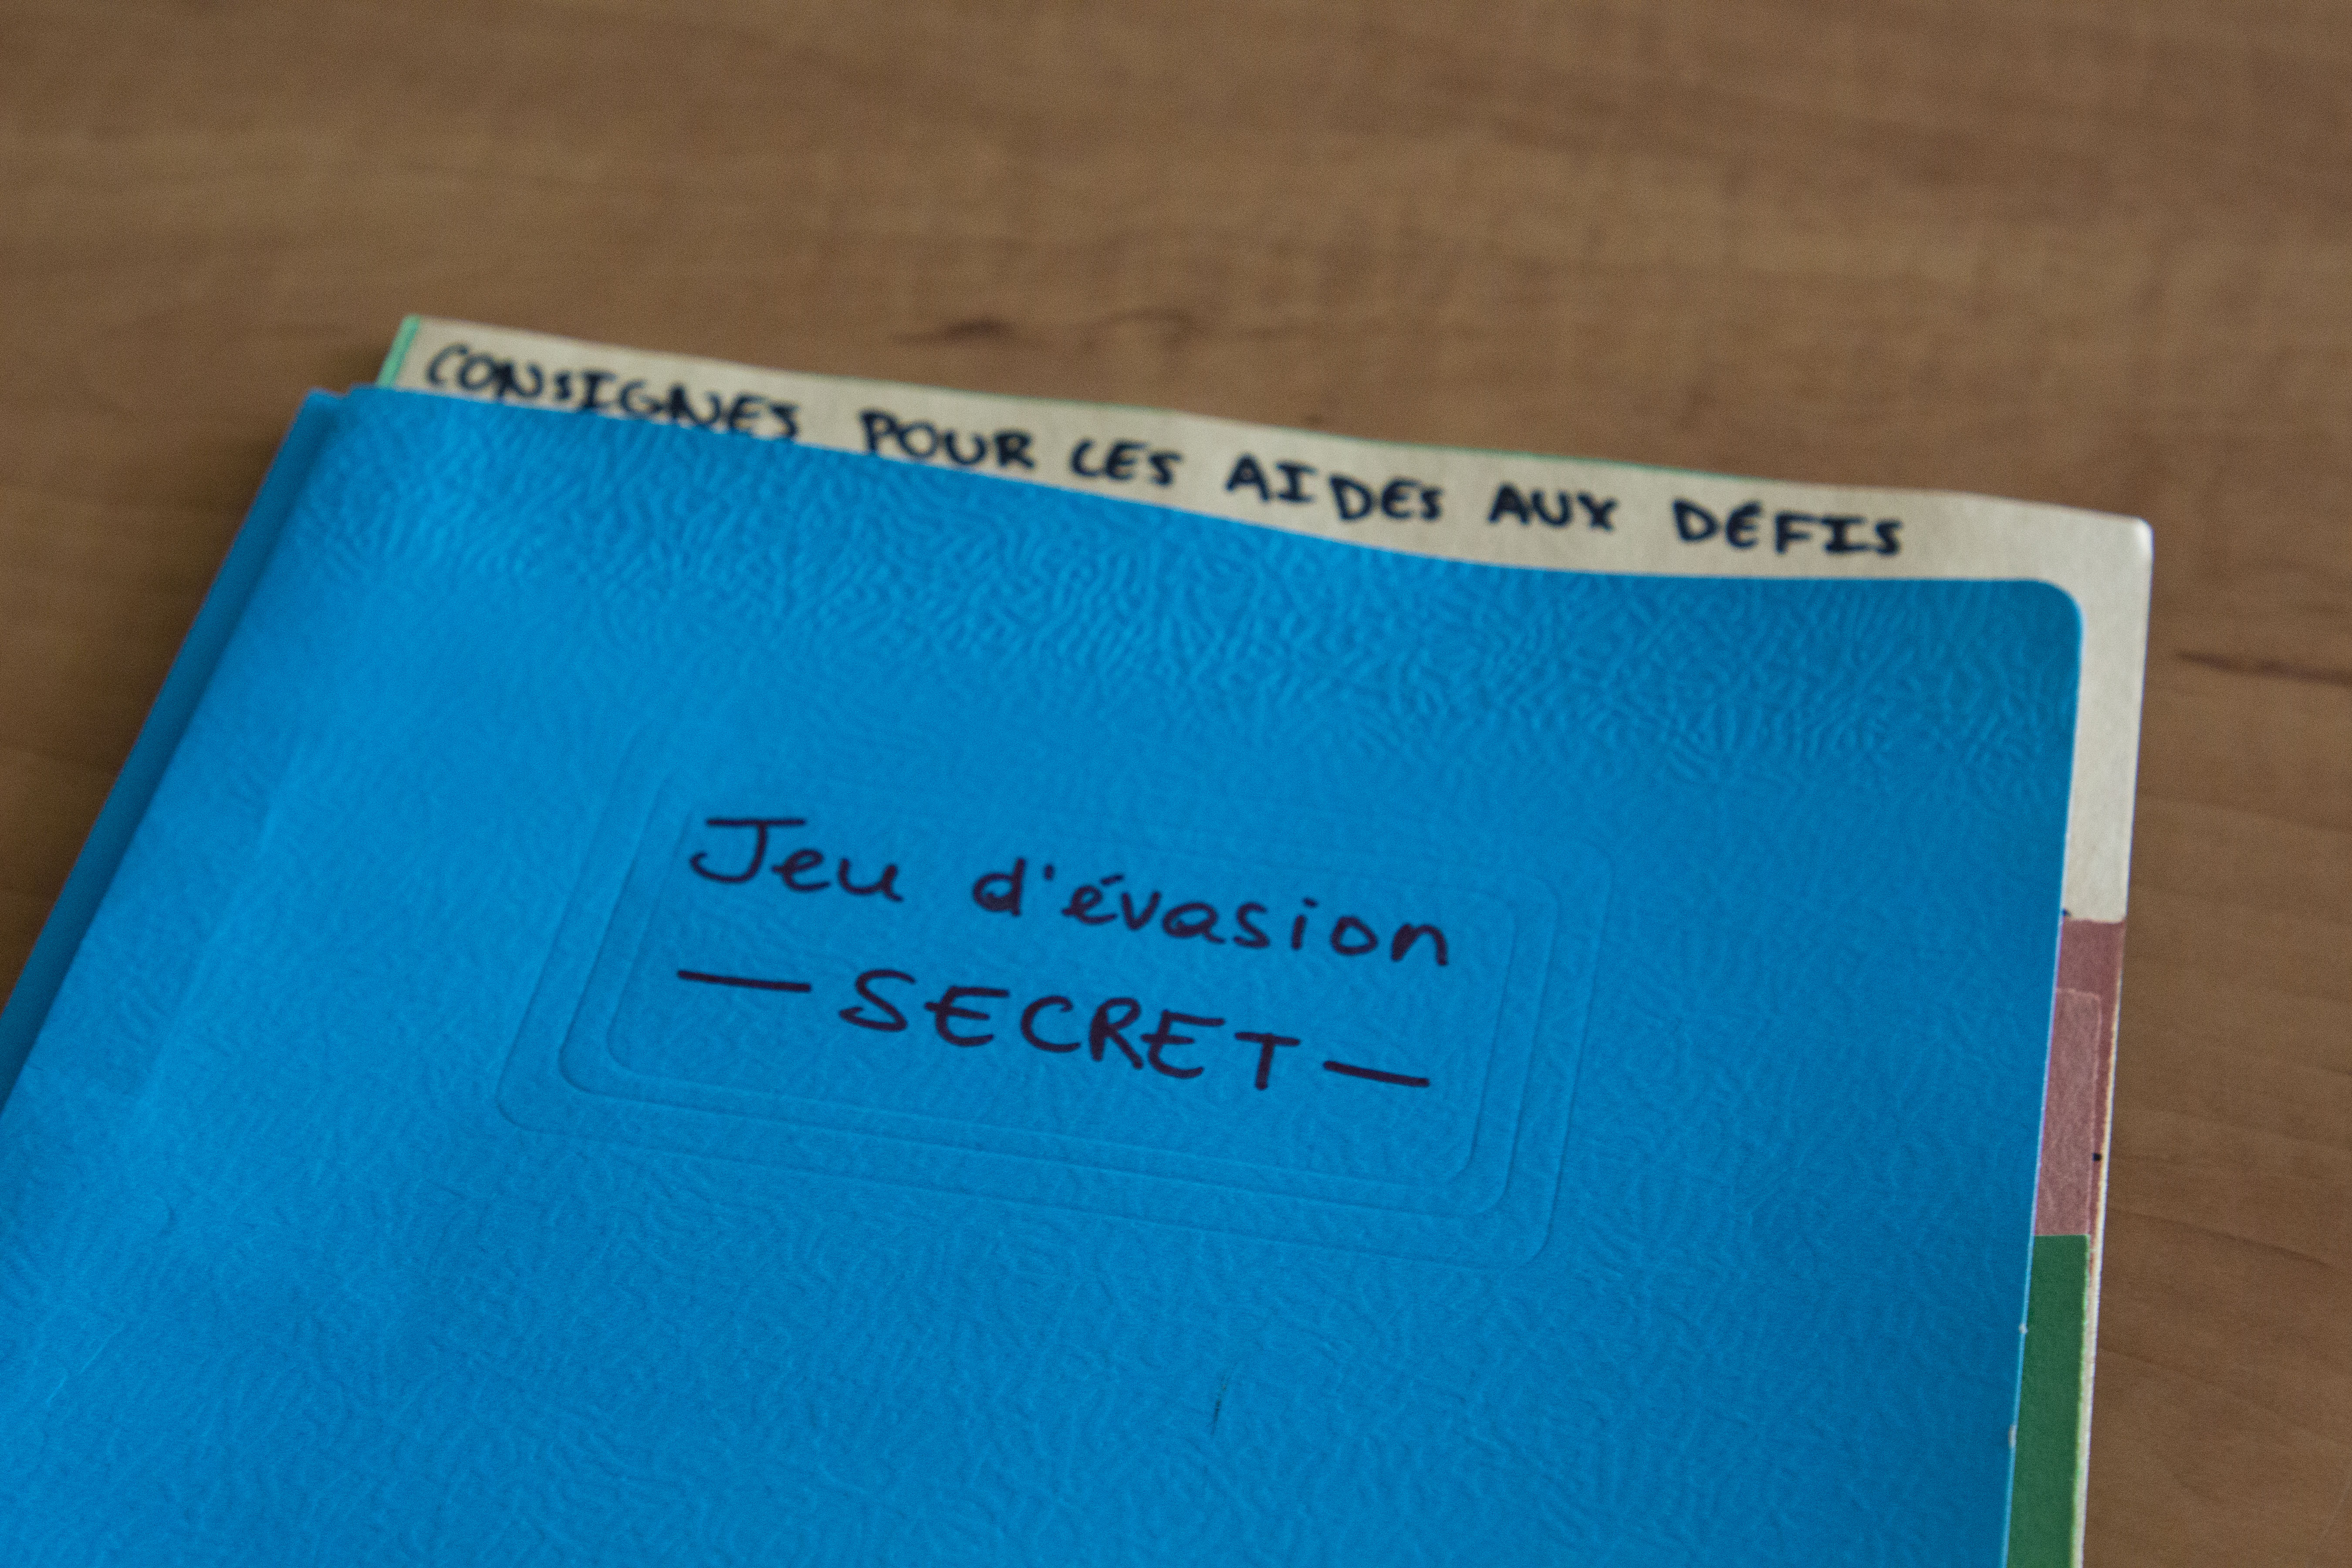 CONSIGNES POUR LES AIDES AUX DÉFIS
Jeu d'évasion
— SECRET —